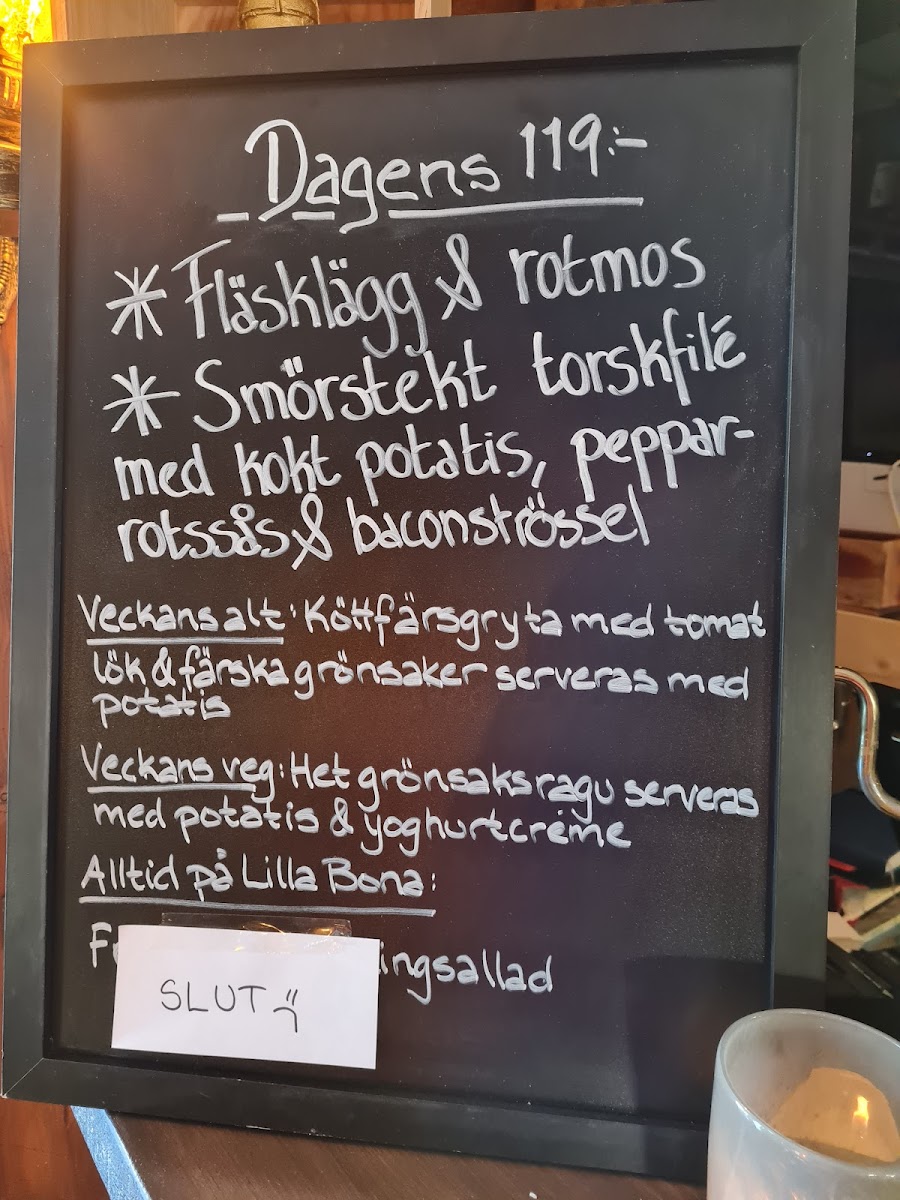 Dagens 119:-
* Fläsklägg & rotmos
* Smörstekt torskfilé
med kokt potatis, peppar-
rotssås & baconströssel
Veckans alt: Köttfärsgryta med tomat
lök & färska grönsaker serveras med
potatis
Veckans veg: Het grönsaksragu serveras
med potatis & yoghurtcréme
Alltid på Lilla Bona:
ingsallad
SLUT